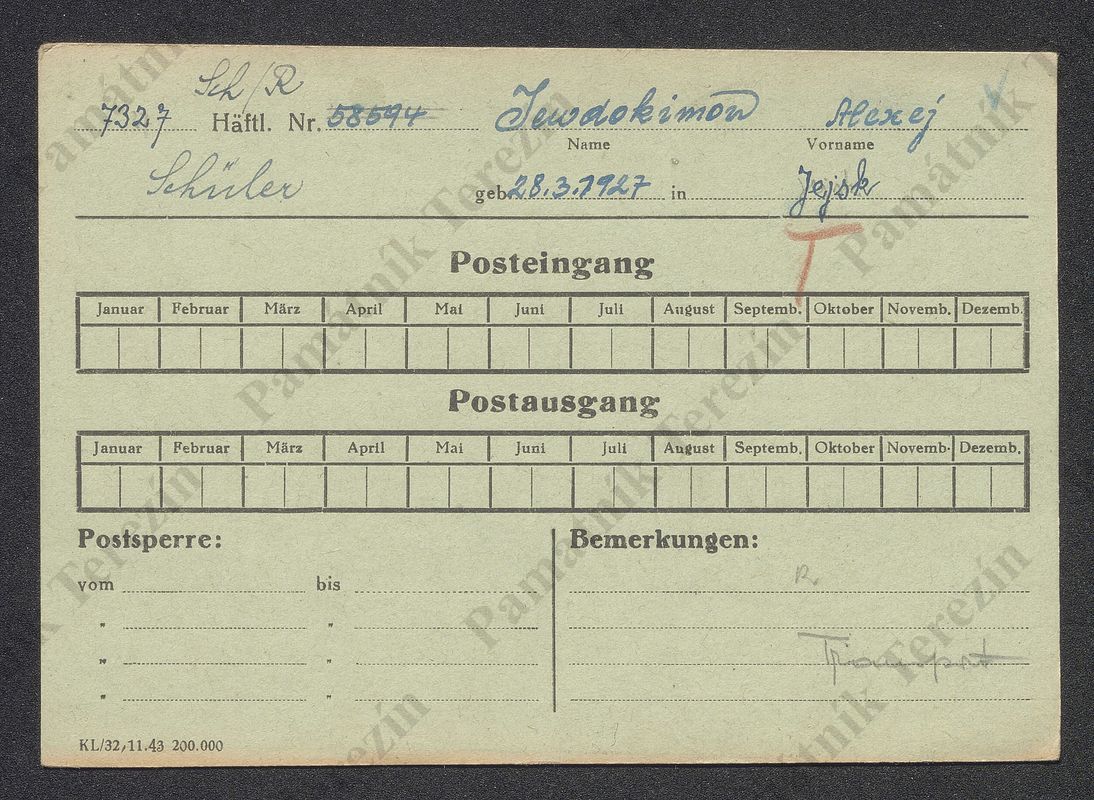 Sch/R
7327 Häftl. Nr. 58594 Jewdokimow Alexej
Name Vorname
Schüler geb. 28.3.1927 in Jejsk
T
Posteingang
Januar Februar März April Mai Juni Juli August Septemb. Oktober Novemb. Dezemb.
Postausgang
Januar Februar März April Mai Juni Juli August Septemb. Oktober Novemb. Dezemb.
Postsperre: Bemerkungen:
vom bis R.
" "
" " Transport
" "
KL/32, 11.43 200.000
Památník Terezín